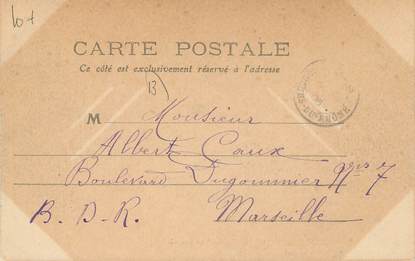 CARTE POSTALE
Ce côté est exclusivement réservé à l'adresse
13
M Monsieur
Albert Caux
Boulevard Dugommier 7
B. D. R. Marseille